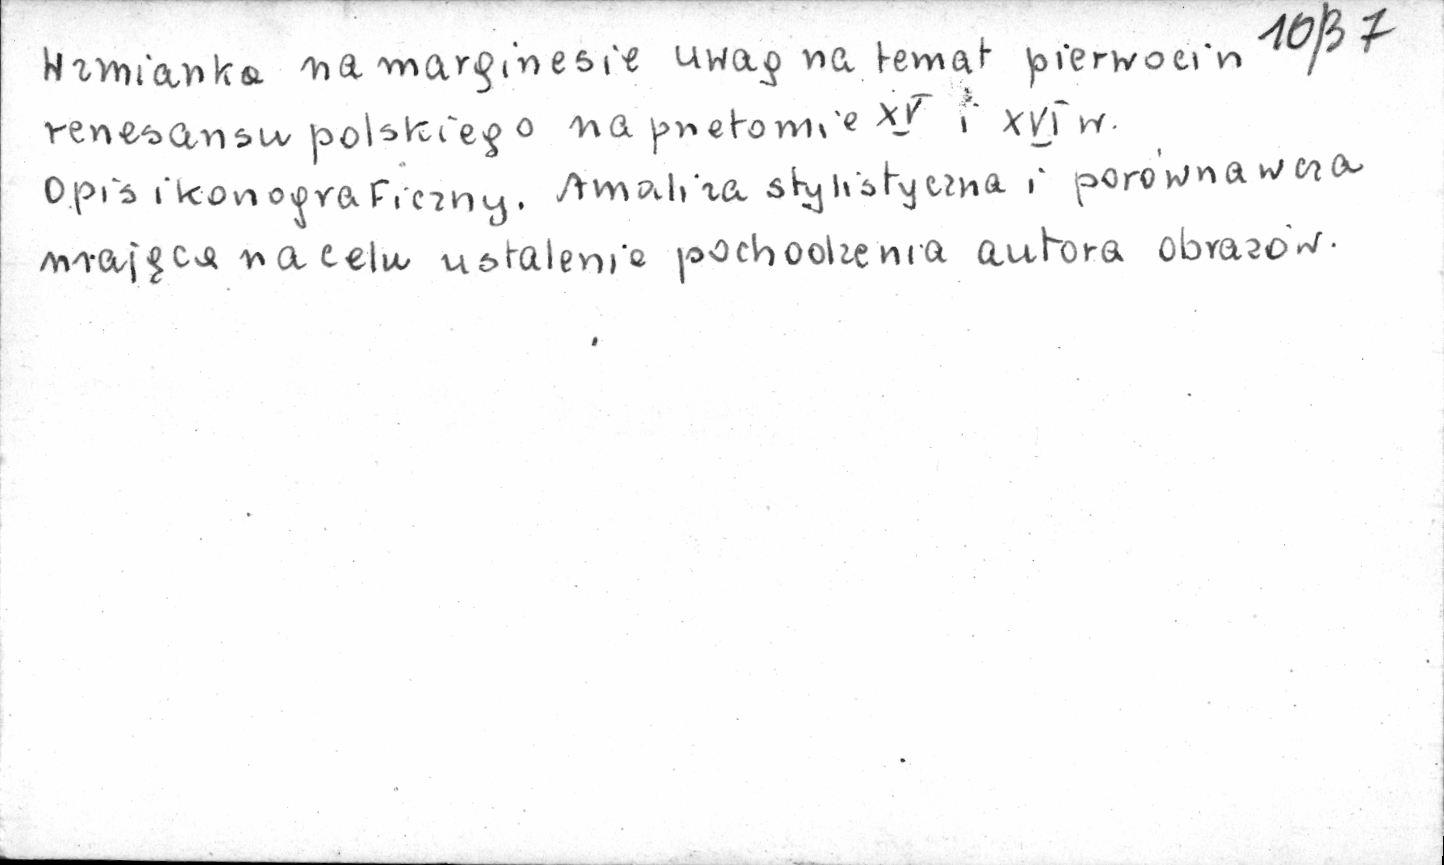 Wzmianka na marginesie uwag na temat pierwocin 10/37
renesansu polskiego na przełomie XV i XVI w.
Opis ikonograficzny. Analiza stylistyczna i porównawcza
mająca na celu ustalenie pochodzenia autora obrazów.